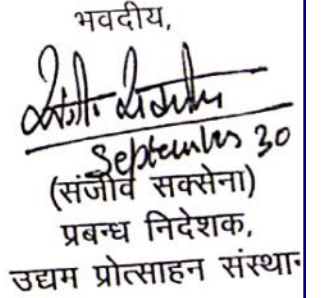 भवदीय,
September 30
(संजीव सक्सेना)
प्रबन्ध निदेशक,
उद्यम प्रोत्साहन संस्थान